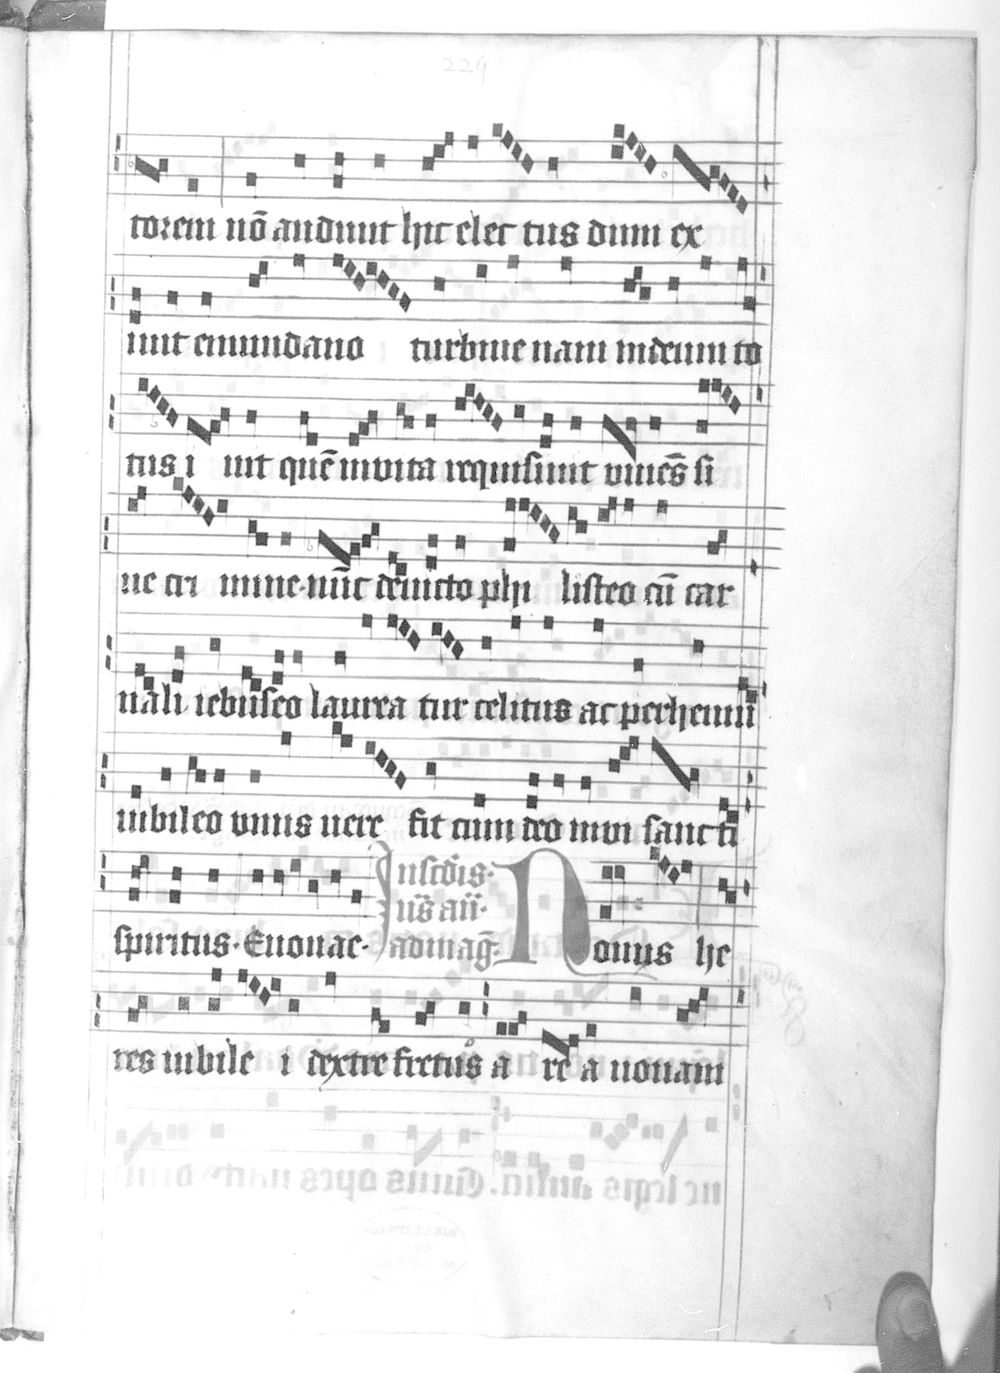 229
torem nō audiuit hic elec tus dum ex
iuit emundano turbine nam indeum to
tus i uit quē inuita requisiuit viuēs si
ne cri mine nūc deuicto phi listeo cū car
nali iebuseo laurea tur celitus ac perhennū
iubileo vnus uere fit cum deo inui sancti
spiritus. Euouae. Nouus he
res iubile i dextre fretus a re a nouam